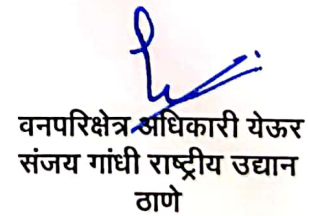 वनपरिक्षेत्र अधिकारी येऊर
संजय गांधी राष्ट्रीय उद्यान
ठाणे